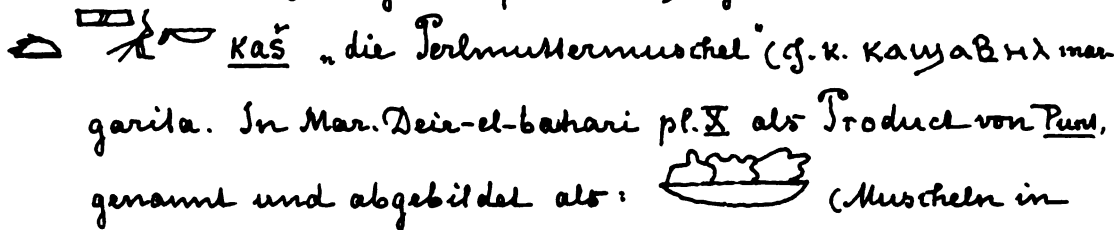 kaš „die Perlmuttermuschel" (cf. K. ⲕⲁϣⲁⲃⲏⲗ mar
garita. In Mar. Deir-el-bahari pl. X als Product von Punt,
genannt und abgebildet als: (Muscheln in